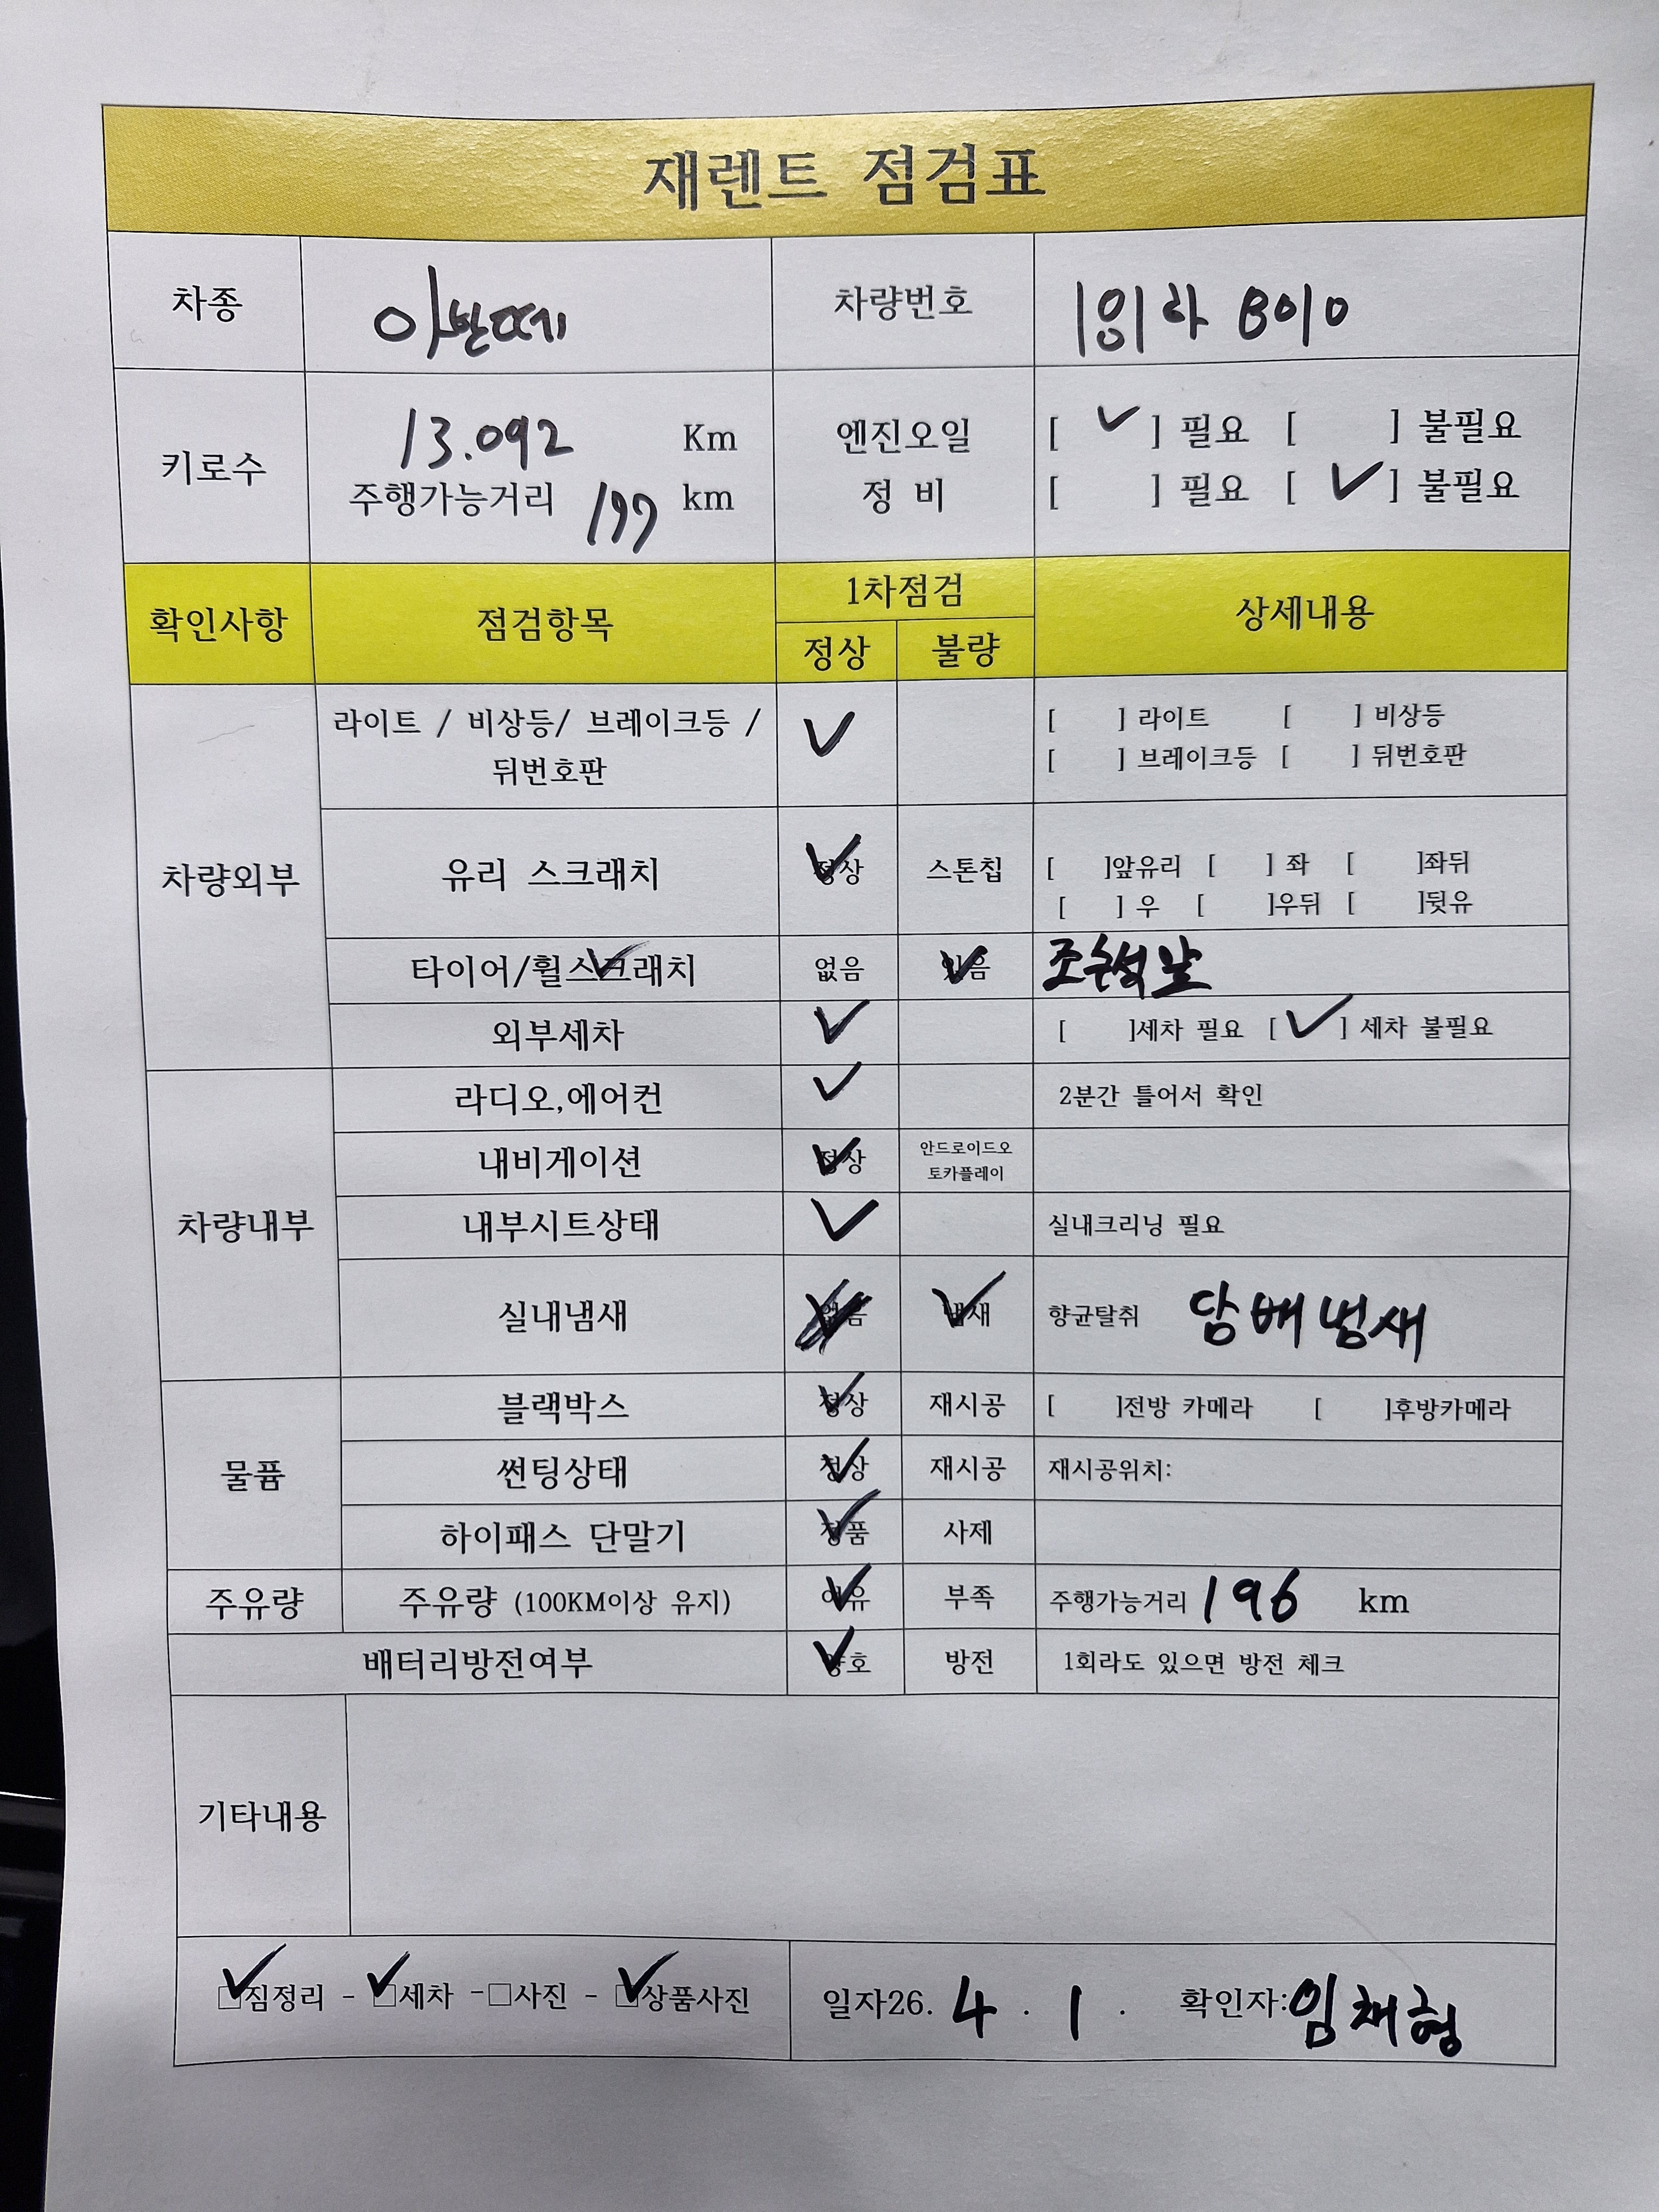 재렌트 점검표
차종 아반떼 차량번호 하 8010
키로수 13.092 Km 엔진오일 [ ✓ ] 필요 [ ] 불필요
주행가능거리 197 km 정 비 [ ] 필요 [ ✓ ] 불필요
확인사항 점검항목 1차점검 상세내용
정상 불량
차량외부
라이트 / 비상등/ 브레이크등 / ✓ [ ] 라이트 [ ] 비상등
뒤번호판 [ ] 브레이크등 [ ] 뒤번호판
유리 스크래치 ✓ 정상 스톤칩 [ ]앞유리 [ ] 좌 [ ]좌뒤
[ ] 우 [ ]우뒤 [ ]뒷유
타이어/휠스크래치 ✓ 없음 있음 ✓ 조수석 앞
외부세차 ✓ [ ]세차 필요 [ ✓ ] 세차 불필요
차량내부
라디오,에어컨 ✓ 2분간 틀어서 확인
내비게이션 ✓ 정상 안드로이드오
토카플레이
내부시트상태 ✓ 실내크리닝 필요
실내냄새 없음 냄새 ✓ 향균탈취 담배냄새
물품
블랙박스 ✓ 정상 재시공 [ ]전방 카메라 [ ]후방카메라
썬팅상태 ✓ 정상 재시공 재시공위치:
하이패스 단말기 ✓ 정품 사제
주유량 주유량 (100KM이상 유지) ✓ 여유 부족 주행가능거리 196 km
배터리방전여부 ✓ 양호 방전 1회라도 있으면 방전 체크
기타내용
✓ 짐정리 - ✓ 세차 -□사진 - ✓ 상품사진 일자26. 4 . 1 . 확인자:임채형